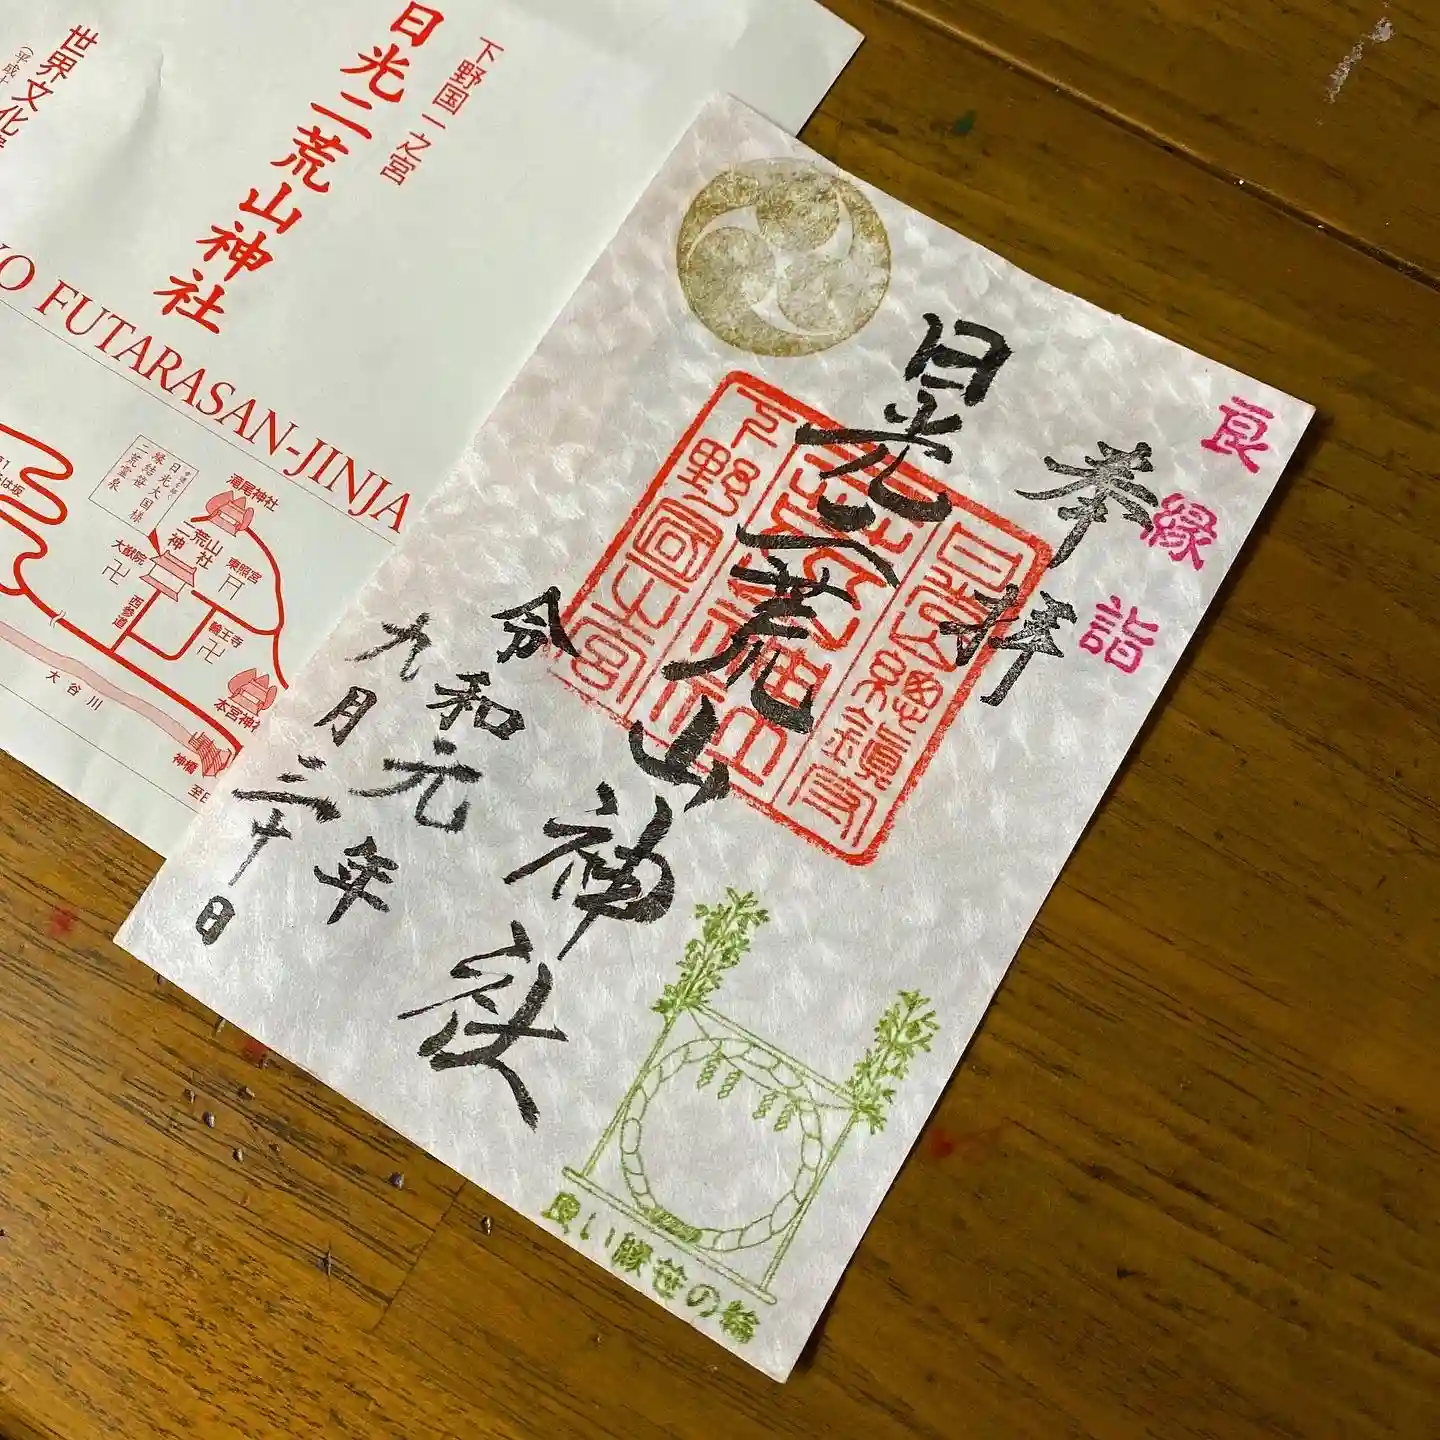 下野国一之宮
日光二荒山神社
世界文化
(平成十
O FUTARASAN-JINJA
日光大国様
縁結び笹
二荒霊泉
滝尾神社
二荒山
神社
大猷院
東照宮
西参道
輪王寺
本宮神社
神橋
大谷川
良縁詣
奉拝
日光二荒山神社
令和元年
九月三十日
良い縁笹の輪